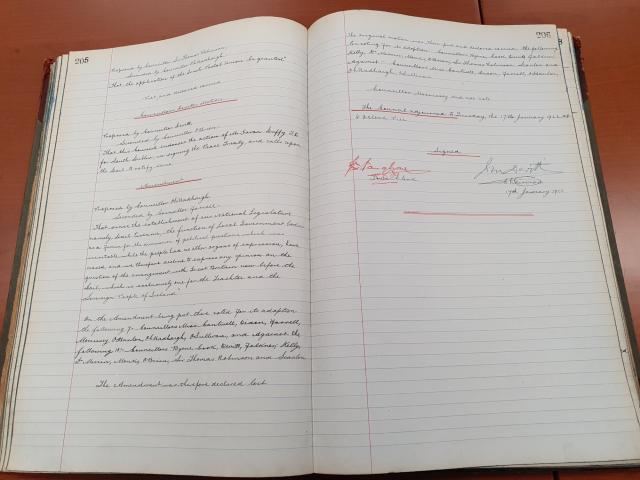 205
Proposed by Councillor Sir Thomas Robinson,
Seconded by Councillor McKadhaigh
That the application of the Local Cadet Tenors be granted"
Put, and declared carried
Proposed by Councillor Scott
Seconded by Councillor
That this Council endorses the action of Mr Gavan Duffy T.D.
for South Dublin in signing the Peace Treaty, and calls upon
the Dail to ratify same
Amendment
Proposed by Councillor McKadhaigh
Seconded by Councillor Farrell
That since the establishment of our National Legislature
namely, Dail Eireann, the function of Local Government bodies
as a forum for the of political questions which was
inevitable while the people had no other organs of expression, have
ceased, and we therefore decline to express any opinion on the
question of the arrangement with Great Britain now before the
Dail, which is exclusively one for the and the
Sovereign People of Ireland"
On the Amendment being put there voted for its adoption
the following 7:- Councillors Miss Cantwell, Dixon, Farrell,
Morrissey, O'Hanlon, McKadhaigh, O'Sullivan, and against the
following 10:- Councillors Byrne, Scott, Dewitt, Faulkner, Kelly,
Dr Morris, Monks, O'Brien, Sir Thomas Robinson and Scanlon
The Amendment was therefore declared lost
206
The original motion was then put and declared carried the following
10 voting for its adoption Councillors Byrne, Scott, Dewitt, Faulkner
Kelly, Dr Morris, Monks, O'Brien, Sir Thomas Robinson, Scanlon and
against:- Councillors Miss Cantwell, Dixon, Farrell, O'Hanlon,
McKadhaigh, O'Sullivan.
Councillor Morrissey did not vote
The Council adjourned to Tuesday, the 17th January 1922, at
o'clock P.M.
Signed
17th January 1922